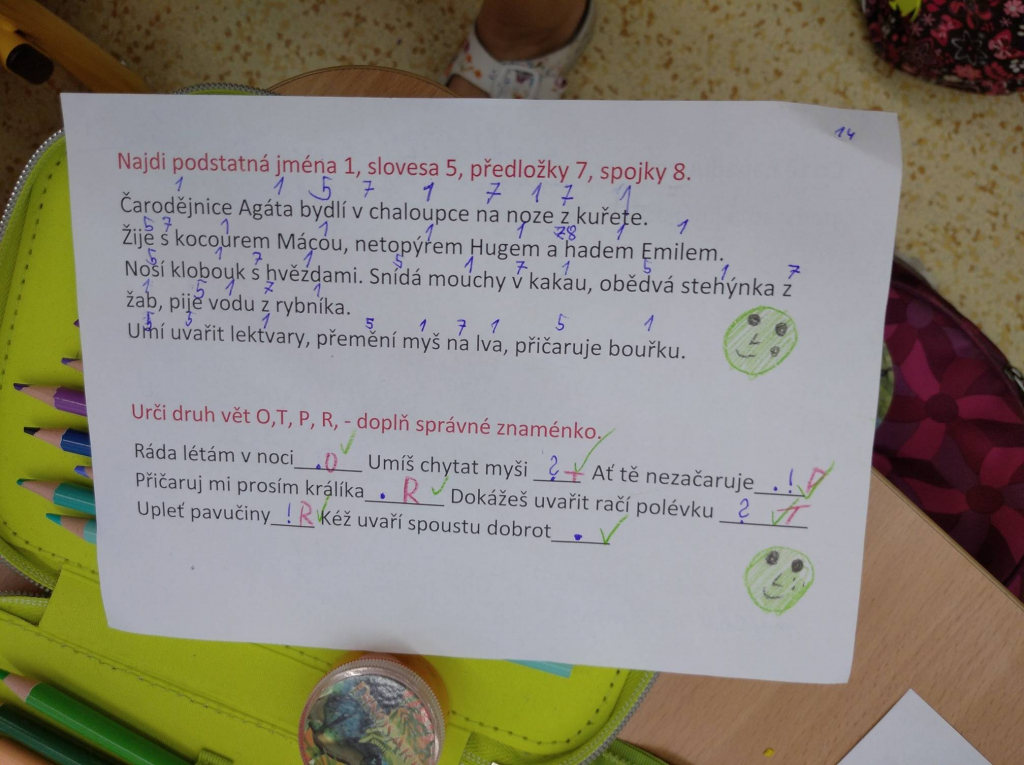 14
Najdi podstatná jména 1, slovesa 5, předložky 7, spojky 8.
1 1 5 7 1 7 1 7 1
Čarodějnice Agáta bydlí v chaloupce na noze z kuřete.
5 7 1 1 1 1 8 1 1
Žije s kocourem Mácou, netopýrem Hugem a hadem Emilem.
5 1 7 1 5 1 7 1 5 1 7
Nosí klobouk s hvězdami. Snídá mouchy v kakau, obědvá stehýnka z
1 5 1 7 1
žab, pije vodu z rybníka.
5 5 1 5 1 7 1 5 1
Umí uvařit lektvary, přemění myš na lva, přičaruje bouřku.
Urči druh vět O,T, P, R, - doplň správné znaménko.
Ráda létám v noci . O Umíš chytat myši ? T Ať tě nezačaruje . ! P
Přičaruj mi prosím králíka . R Dokážeš uvařit račí polévku ? T
Upleť pavučiny ! R Kéž uvaří spoustu dobrot .